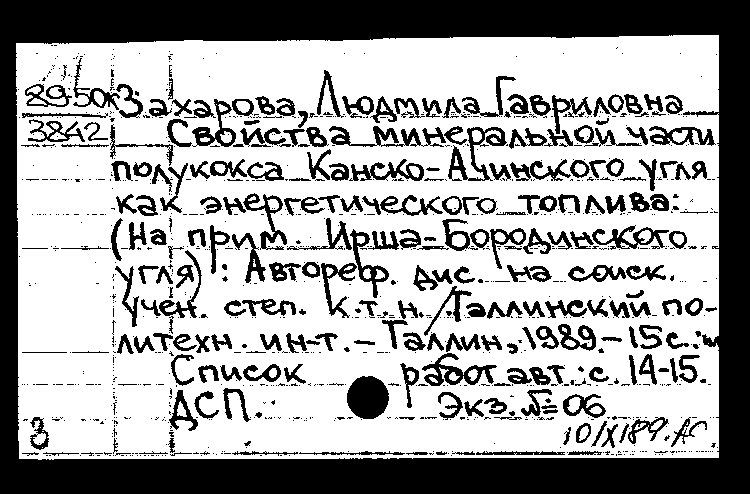 8950к
3842
Захарова, Людмила Гавриловна
Свойства минеральной части
полукокса Канско-Ачинского угля
как энергетического топлива:
(На прим. Ирша-Бородинского
угля) : Автореф. дис. на соиск.
учен. степ. к.т.н. / Таллинский по-
литехн. ин-т. – Таллин, 1989. – 15 с.:
Список работ авт.: с. 14-15.
ДСП. Экз. № 06.
3 10/IX189. АС.